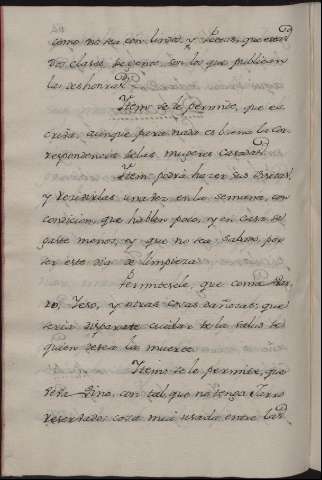 como no sea con lindos, y Poetas, que estas
dos clases de gentes, son los que publican
las deshonras.
Ytem: se le permite, que es-
criva, aunque para nada es buena la cor-
respondencia de las mugeres Casadas.
Ytem podrá hazer sus visitas,
y recivirlas una vez en la semana, con
condicion, que hablen poco, y en casa se
gaste menos, y que no sea Sabado, por
ser este dia de limpieza.
Permitesele, que coma Bar-
ro, Yeso, y otras cosas dañosas, que
seria disparate cuidar de la salud de
quien desea la muerte.
Ytem: se le permite, que
beva Vino, con tal, que no tenga
reservado, cosa mui usada entre las